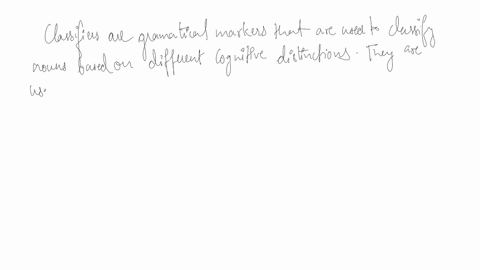 Classifiers are gramatical markers that are used to classify
nouns based on different cognitive distinctions. They are
us